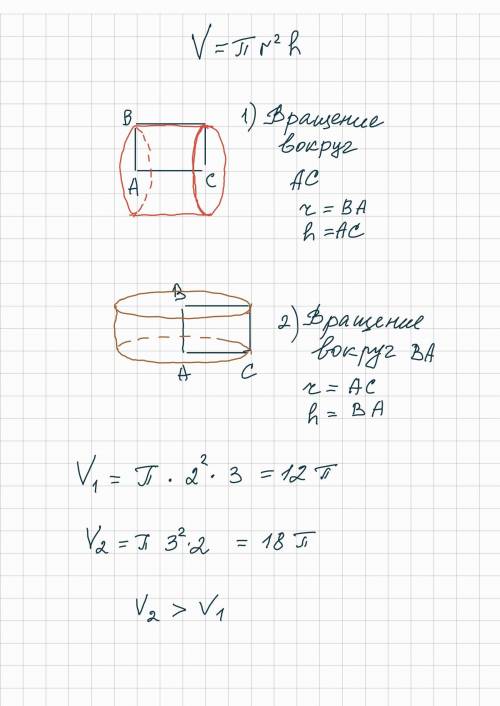 V = π r² h
B
A
C
1) Вращение
вокруг
AC
r = BA
h = AC
B
A
C
2) Вращение
вокруг BA
r = AC
h = BA
V₁ = π · 2² · 3 = 12 π
V₂ = π 3² · 2 = 18 π
V₂ > V₁